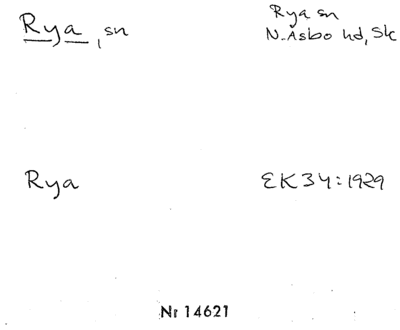 Rya, sn
Rya sn
N. Åsbo hd, Sk
Rya
EK34:1929
Nr 14621